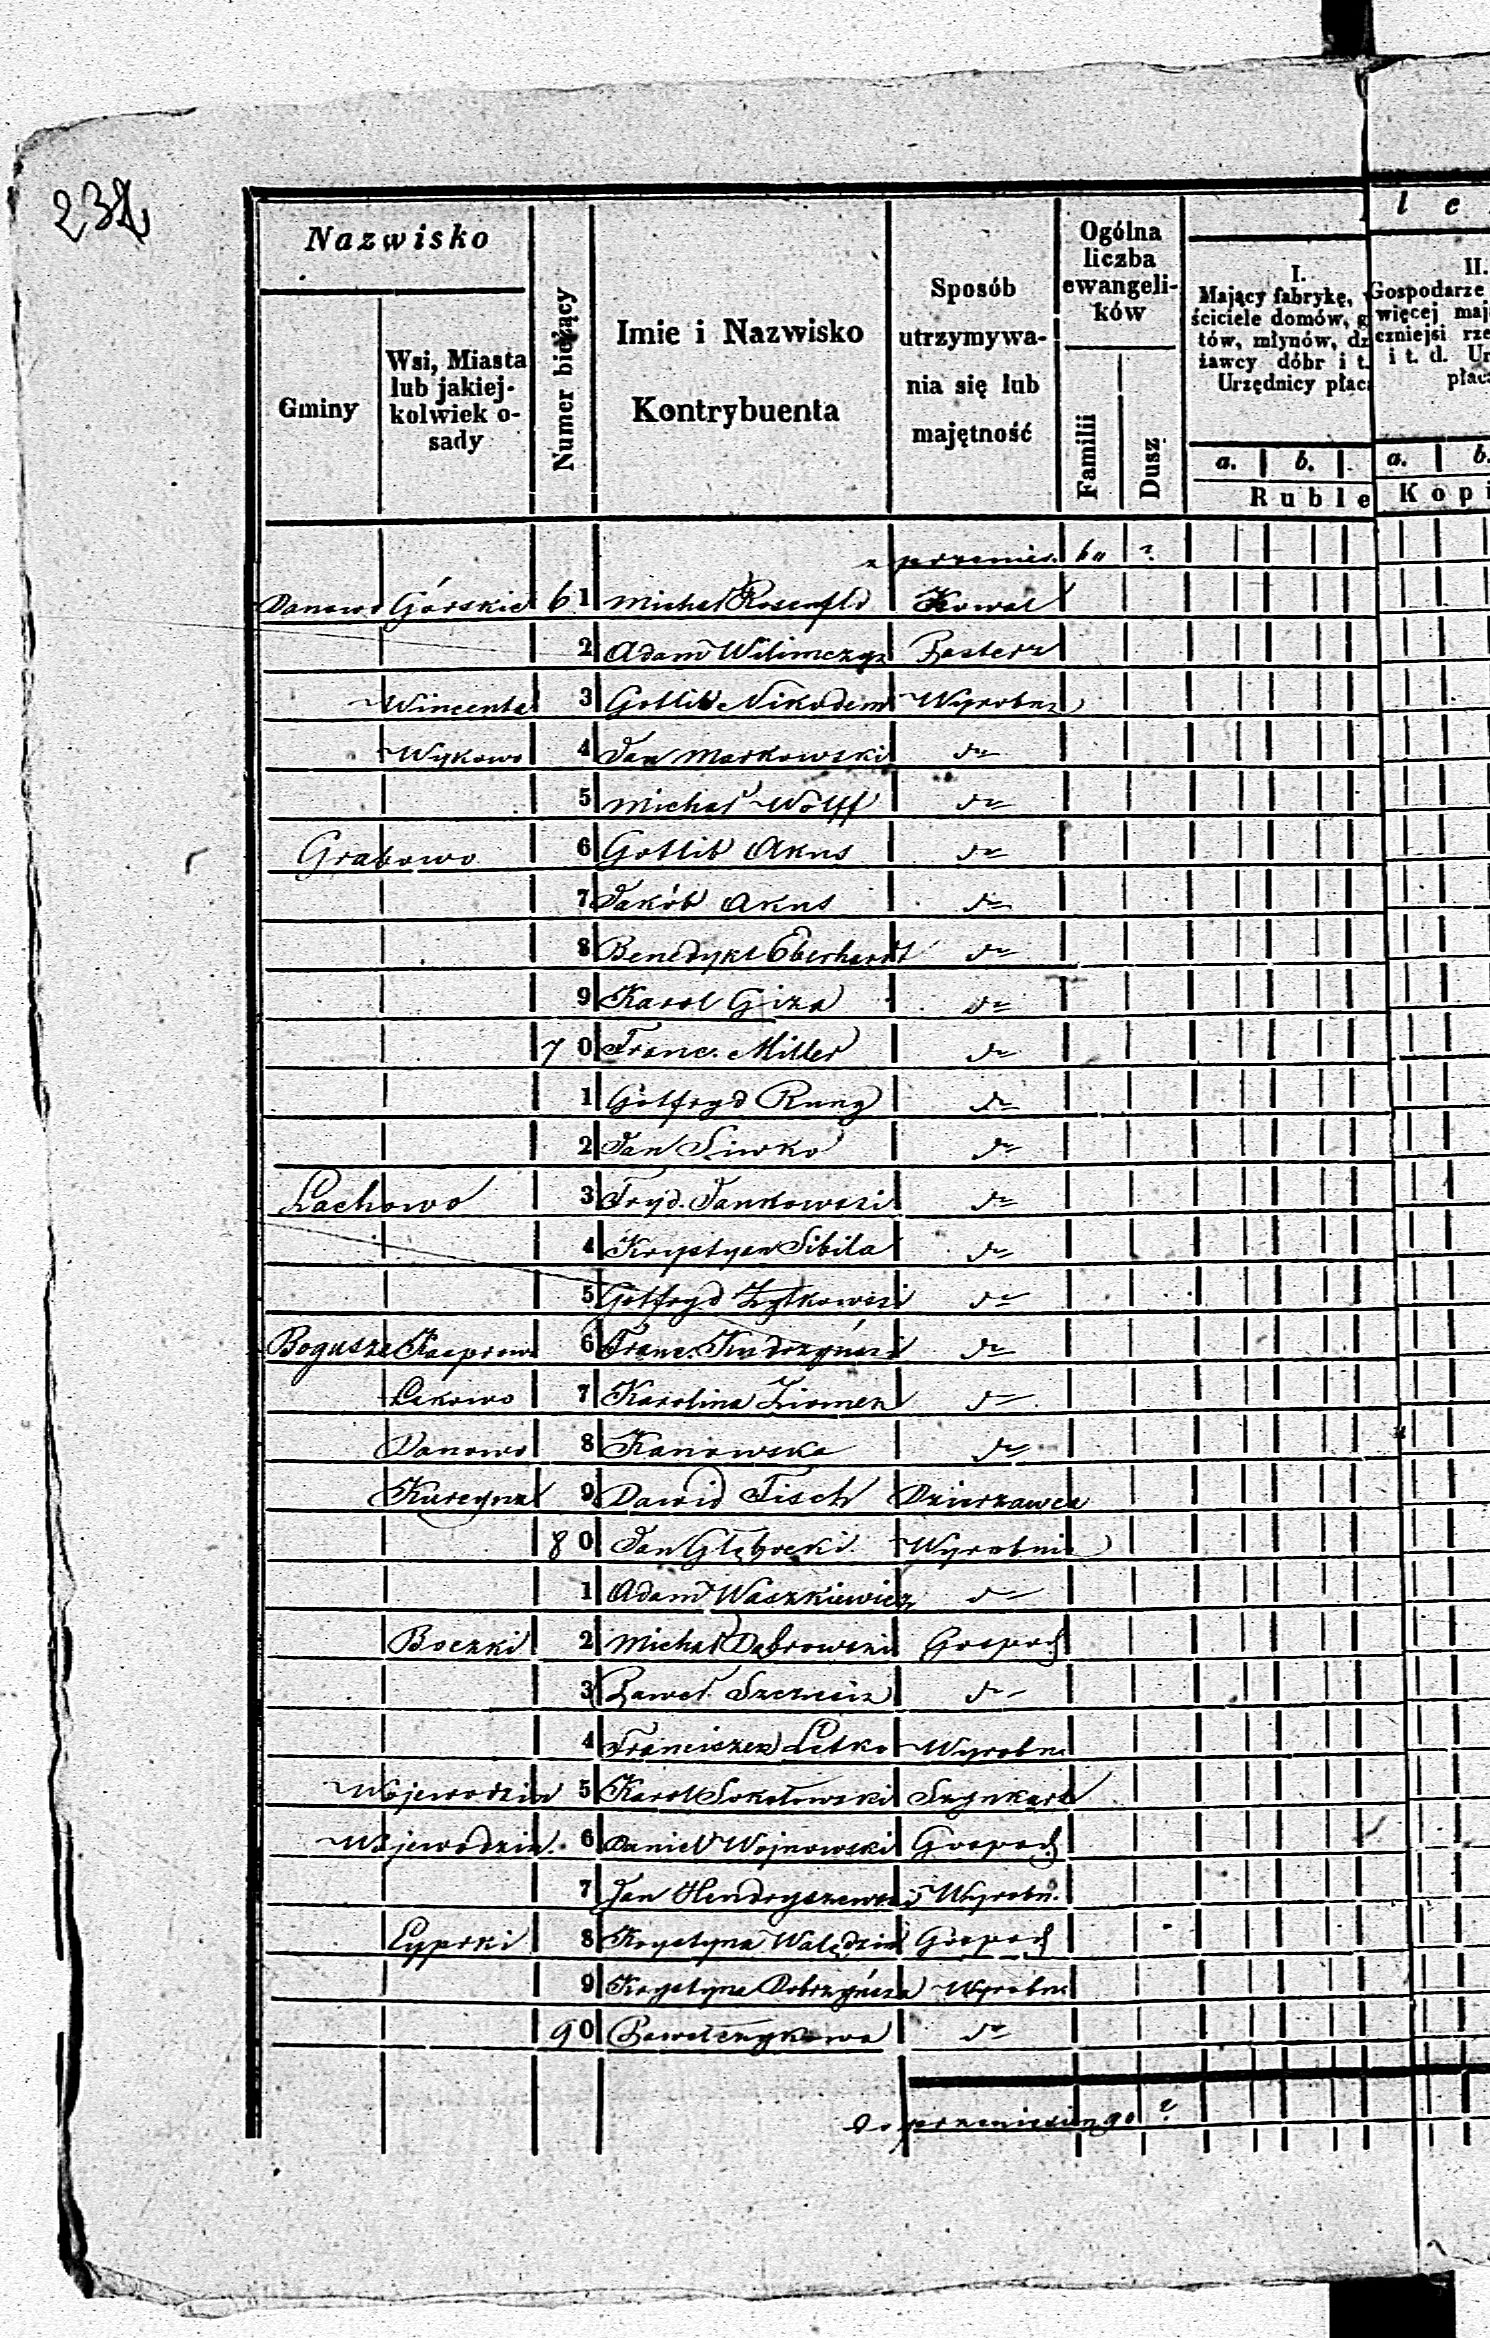 232
Nazwisko
Gminy
Wsi, Miasta lub jakiej-kolwiek o-sady
Numer bieżący
Imie i Nazwisko Kontrybuenta
Sposób utrzymywa-nia się lub majętność
Ogólna liczba ewangeli-ków
Familii
Dusz
l e
I.
Mający fabrykę,
ściciele domów, g
tów, młynów, dz
żawcy dóbr i t.
Urzędnicy płac
II.
Gospodarze
więcej maj
czniejsi rze
i t. d. Ur
płac
a. b. a. b.
Ruble Kopi
z przenies. 60 ?
Danowo Górskie 61 Michał Rosenfld Kowal
2 Adam Wilimczyz Pasterz
Wincenta 3 Gottlib Nikodem Wyrobn
Wykowo 4 Jan Markowski do
5 Michał Wolff do
Grabowo 6 Gottlib Akus do
7 Jakób Akus do
8 Benedykt Eberhardt do
9 Karol Giza do
70 Franc. Miller do
1 Gotfryd Rung do
2 Jan Siwko do
Lachowo 3 Fryd. Jankowski do
4 Krystyan Sibila do
5 Gotfryd Zytkowski do
Bogusze 6 Franc. do
7 Karolina Ziomek do
Danowo 8 Kanowska do
9 Dawid Fisch Dzierzawca
80 Jan Głębocki Wyrobnik
1 Adam Waszkiewicz do
Boczki 2 Michał Dąbrowski Gospod
3 Paweł do
4 Franciszek Letko Wyrobn
Wojewodzin 5 Karol Sokołowski Szynkarz
Wojewodzin. 6 Daniel Wojnowski Gospod.
7 Jan Hendryszewski Wyrobn.
8 Krystyna Gospod
9 Krystyna Dobrzyńska Wyrobn
90 Pawelczykowa do
Do przeniesien 90 ?